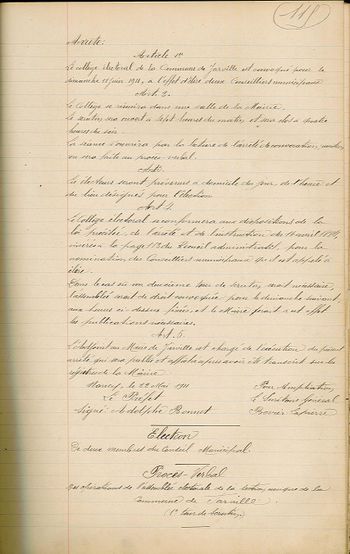 118
Arrête:
Article 1er
Le collège électoral de la Commune de Jarville est convoqué pour le
dimanche 18 juin 1911, à l'effet d'élire deux Conseillers municipaux
Art. 2.
Le Collège se réunira dans une salle de la Mairie.
Le scrutin sera ouvert à sept heures du matin et sera clos à quatre
heures du soir.
La séance s'ouvrira par la lecture de l'arrêté de convocation, mention
en sera faite au procès-verbal.
Art. 3.
Les électeurs seront prévenus à domicile du jour, de l'heure et
du lieu désignés pour l'élection
Art. 4.
Le Collège électoral se conformera aux dispositions de la
loi précitée, de l'arrêté et de l'instruction du 18 avril
insérés à la page 113 du Recueil administratif, pour la
nomination des Conseillers municipaux qu'il est appelé à
élire.
Dans le cas où un deuxième tour de scrutin serait nécessaire,
l'assemblée serait de droit convoquée pour le dimanche suivant,
aux heures ci-dessus fixées, et le Maire ferait à cet effet
les publications nécessaires.
Art. 5.
L'adjoint au Maire de Jarville est chargé de l'exécution du présent
arrêté qui sera publié et affiché après avoir été transcrit sur les
registres de la Mairie
Nancy, le 22 Mai 1911
Pour Ampliation,
Le Préfet
Le Secrétaire Général
Signé: Adolphe Bonnet
Bovier Lapierre
Election
De deux membres du Conseil Municipal.
Procès-Verbal
des opérations de l'assemblée électorale de la section unique de la
Commune de Jarville
(1er tour de scrutin)